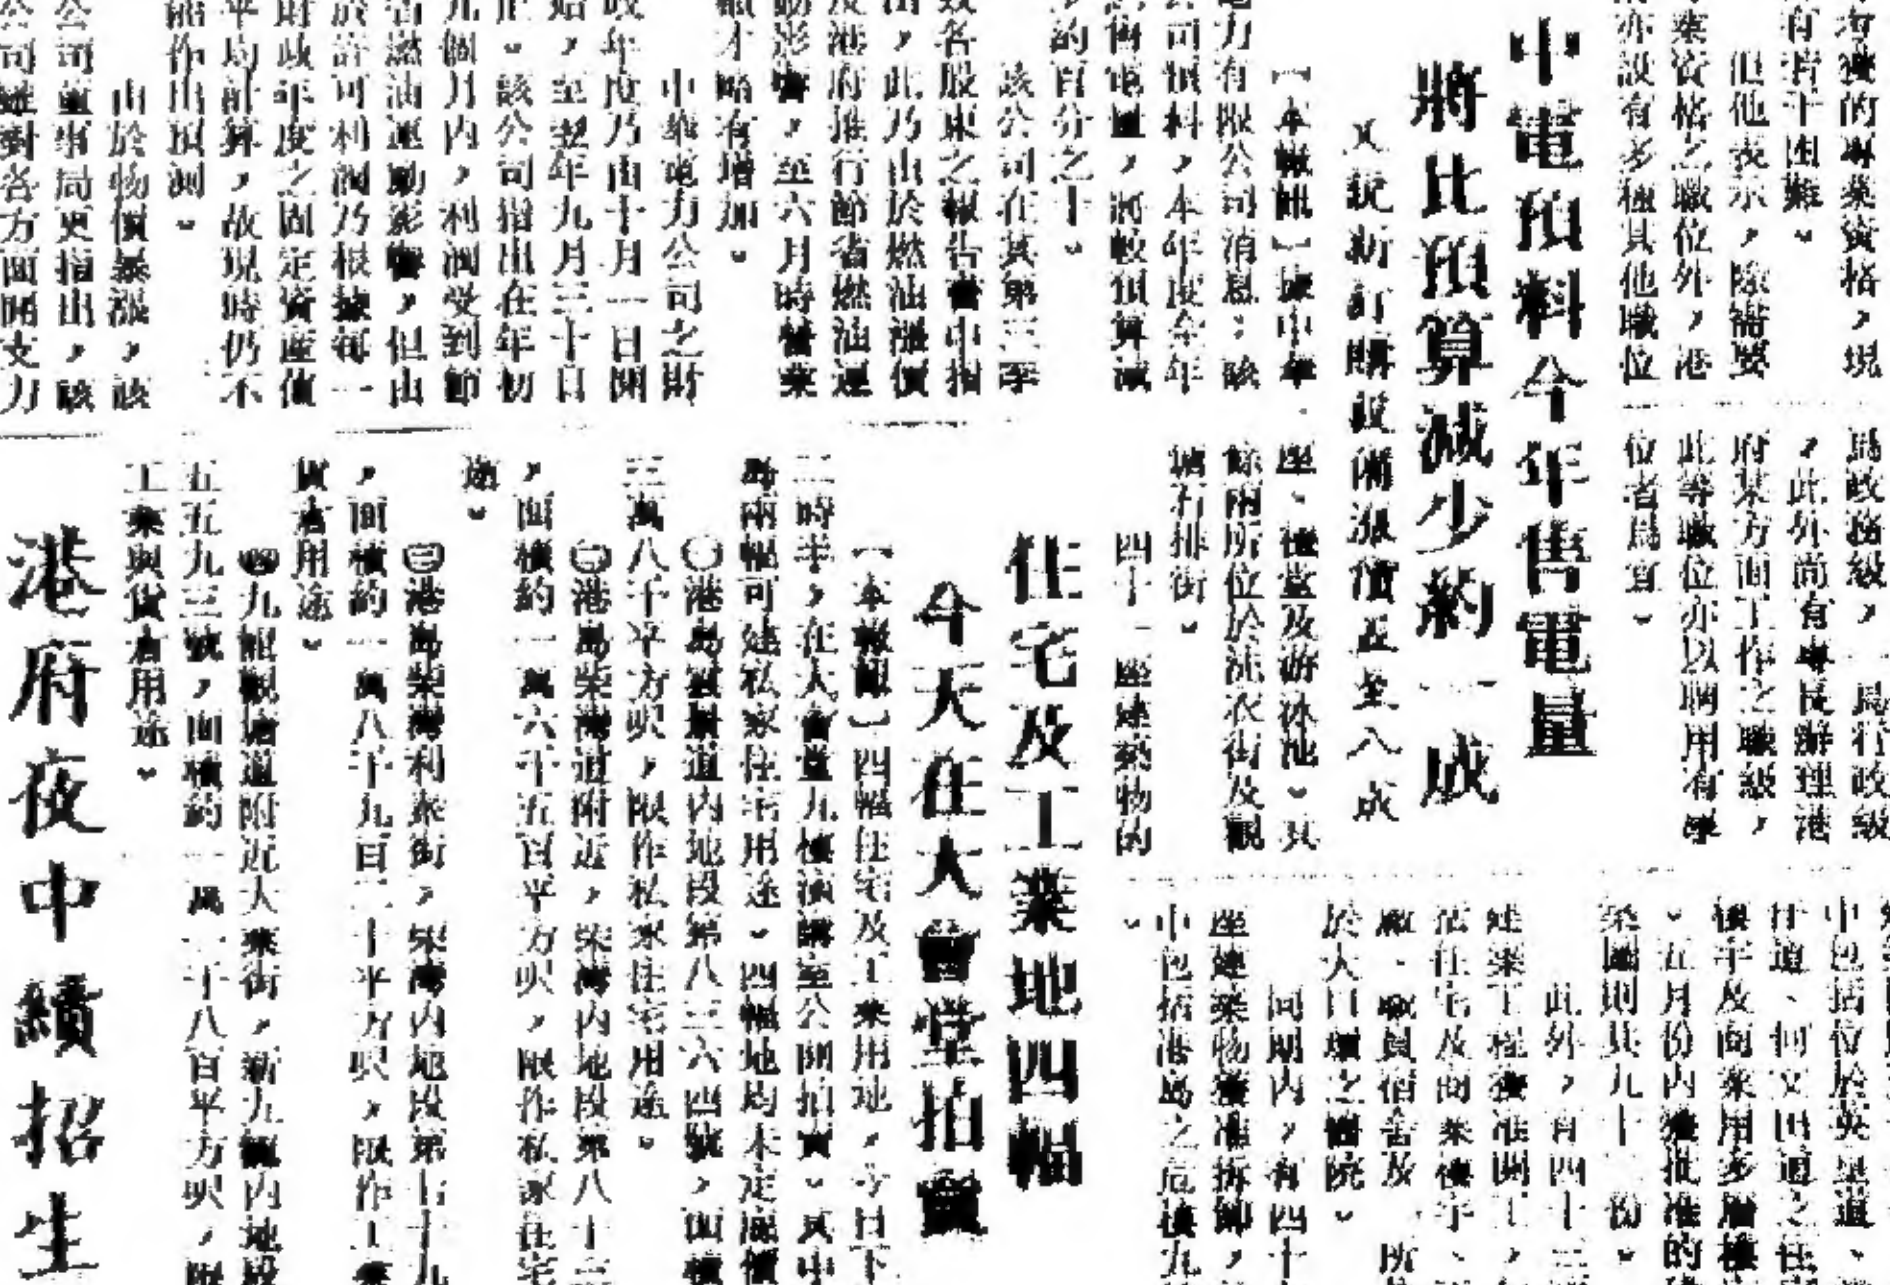 者獲的專業資格，現
有若干困難。
但他表示，除需要
業資格之職位外，港
亦設有多種其他職位
爲政務級，一爲行政級
，此外尚有專長辦理港
府某方面工作之職級，
此等職位亦以聘用有學
位者爲宜。
中電預料今年售電量
將比預算減少約一成
又説新訂購設備漲價五至八成
【本報訊】據中華
電力有限公司消息，該
公司預料，本年度全年
售電量，將較預算減
少約百分之十。
該公司在其第三季
致各股東之報告書中指
出，此乃由於燃油漲價
及港府推行節省燃油運
動影響，至六月時營業
額才略有增加。
中華電力公司之財
政年度乃由十月一日開
始，至翌年九月三十日
止。該公司指出在年初
九個月內，利潤受到節
省燃油運動影響，但由
於許可利潤乃根據每一
財政年度之固定資產值
平均計算，故現時仍不
能作出預測。
由於物價暴漲，該
公司董事局更指出，該
公司雖對各方面開支力
座、禮堂及游泳池。其
餘兩所位於洗衣街及觀
塘石排街。
四十一座建築物的
住宅及工業地四幅
今天在大會堂拍賣
【本報訊】四幅住宅及工業用地，今日下
二時半，在大會堂九樓演講室公開拍賣。其中
兩幅可建私家住宅用途。四幅地均未定底價
㊀港島雲景道內地段第八三六四號，面積
三萬八千平方呎，限作私家住宅用途。
㊁港島柴灣道附近，柴灣內地段第八十三
，面積約一萬六千五百平方呎，限作私家住宅
途。
㊂港島柴灣利眾街，柴灣內地段第七十九
，面積約一萬八千九百二十平方呎，限作工業
貨倉用途。
㊃九龍觀塘道附近大業街，新九龍內地段
五五九三號，面積約一萬二千八百平方呎，限
工業與貨倉用途。
港府夜中續招生
中包括位於英皇道、
仔道、何文田道之住
樓宇及商業用多層樓
。五月份內獲批准的建
築圖則共九十一份。
此外，有四十三
建築工程獲准開工，
括住宅及商業樓宇、
廠、職員宿舍及一所
於大口環之醫院。
同期內，有四十
座建築物獲准拆卸，
中包括港島之危樓九
。